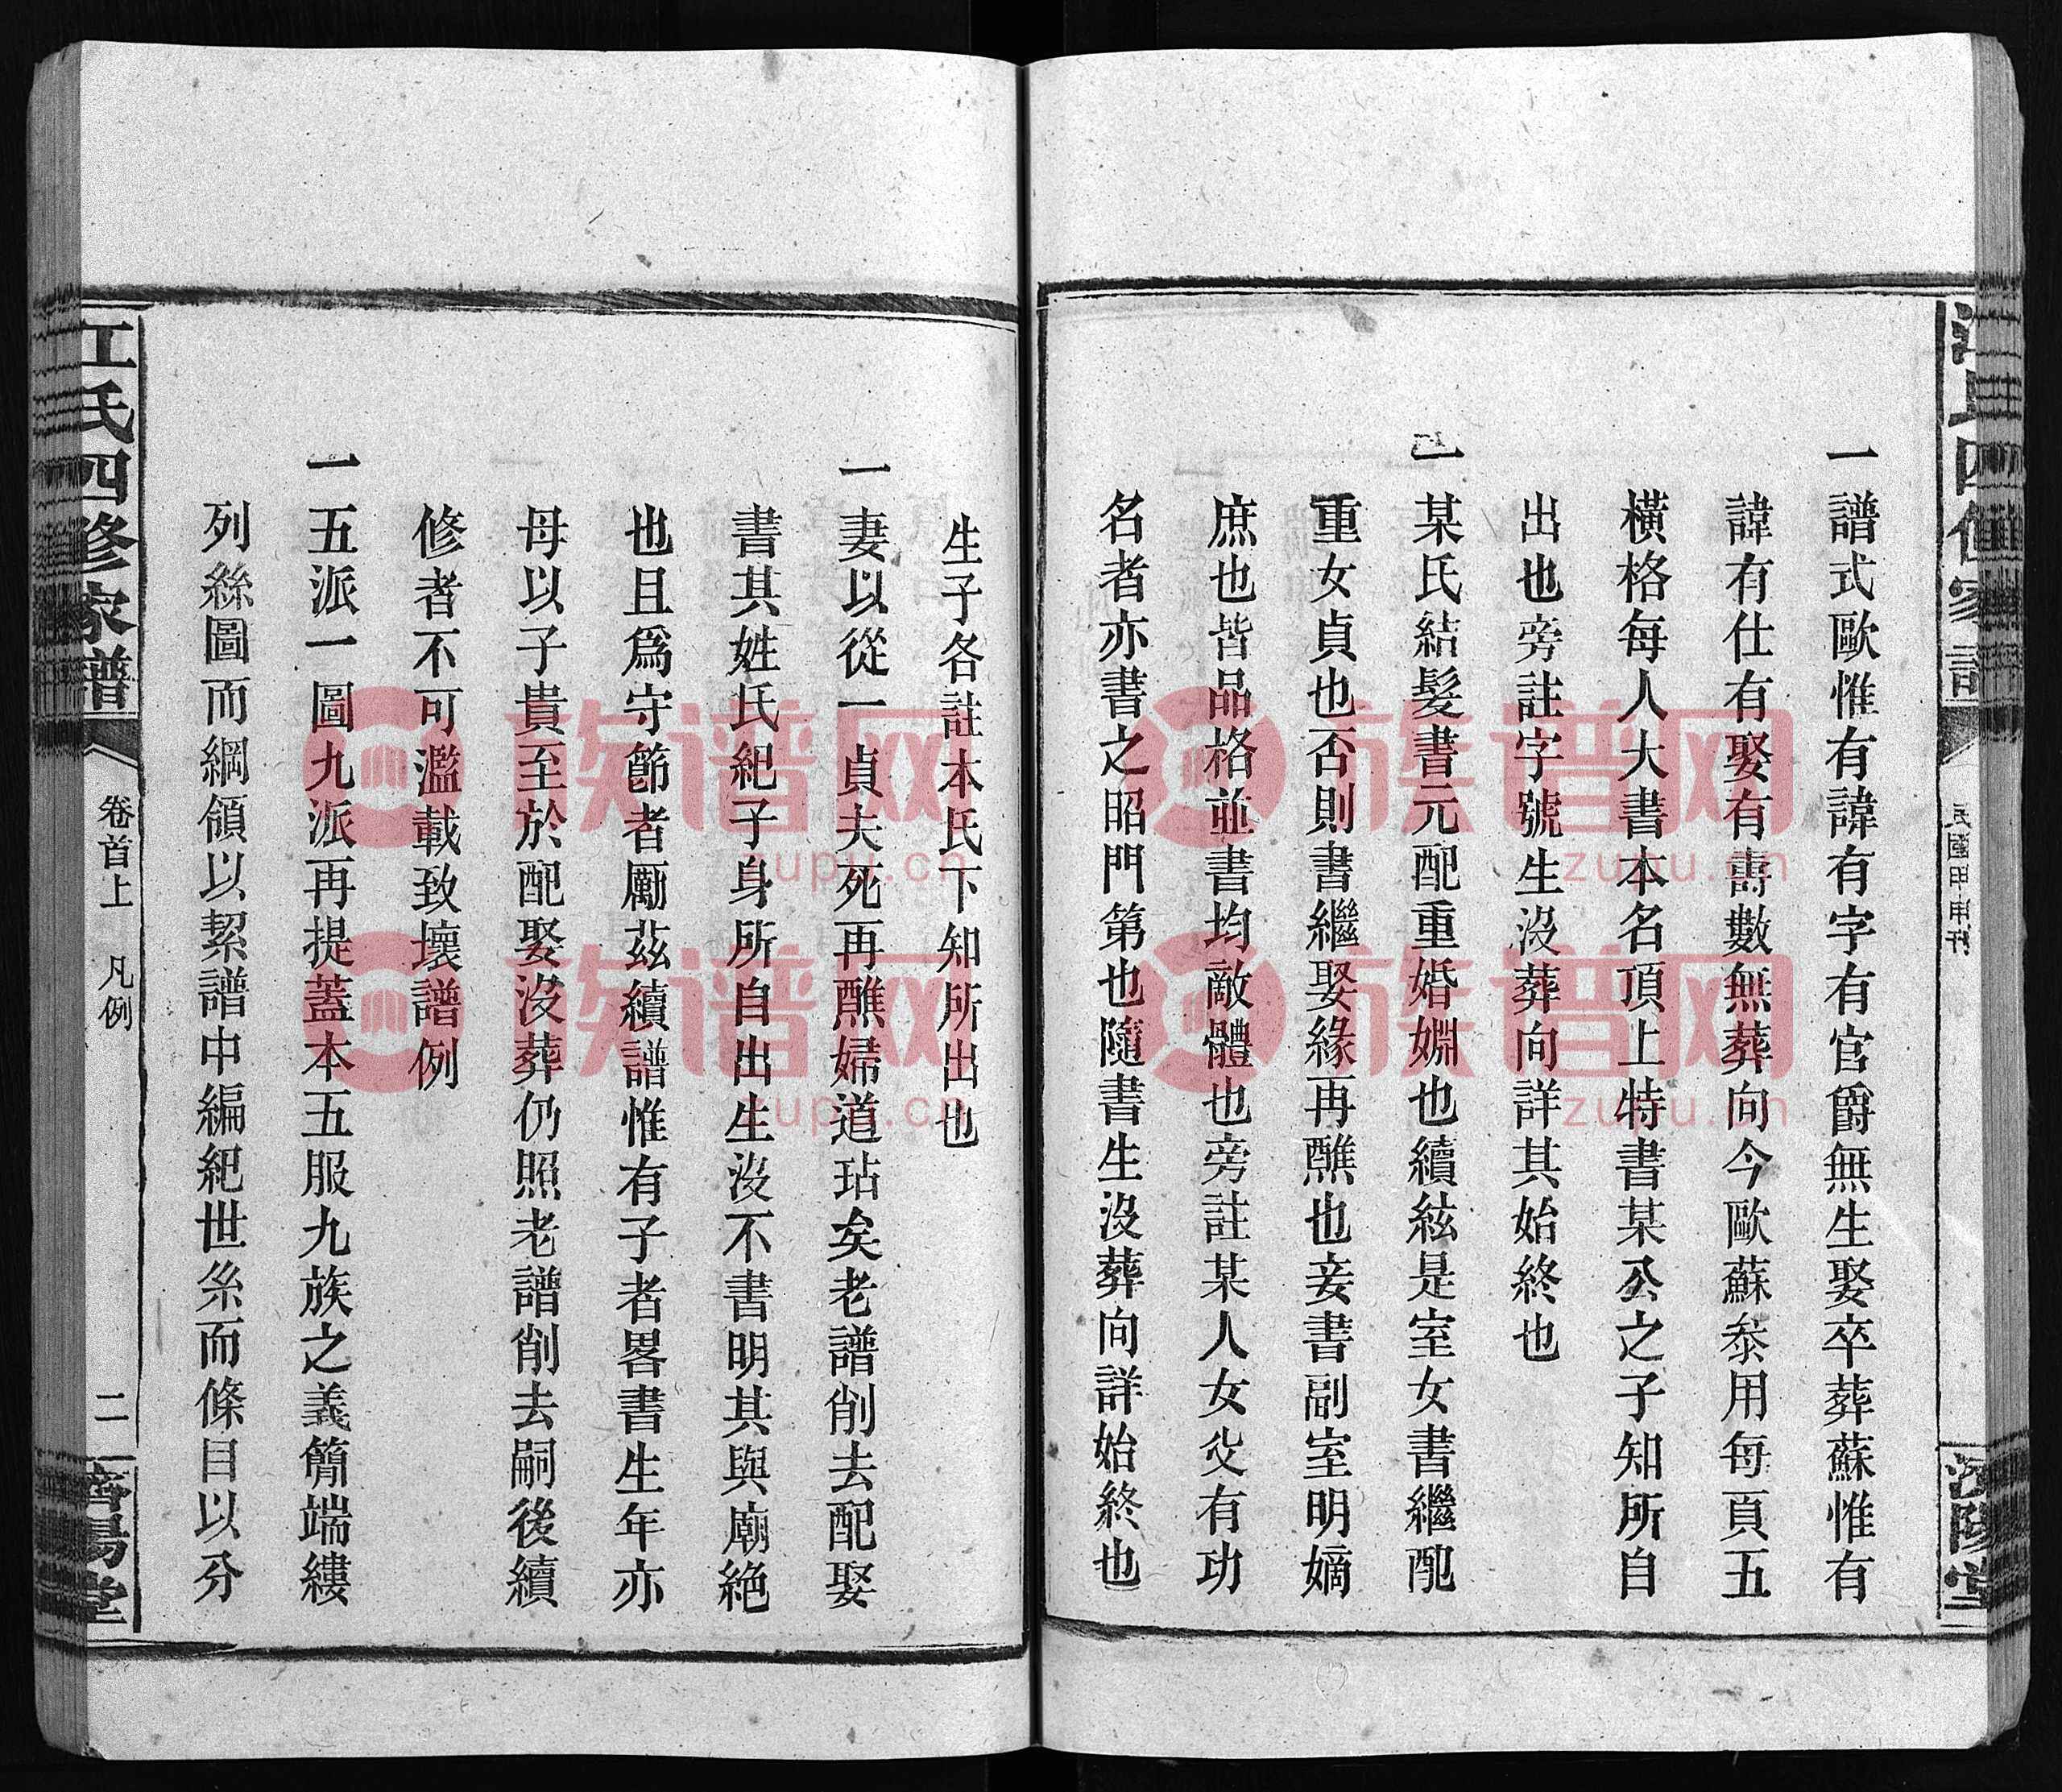 江氏四修家譜
民國甲申刊
濟陽堂
一譜式歐惟有諱有字有官爵無生娶卒葬蘇惟有
諱有仕有娶有壽數無葬向今歐蘇叅用每頁五
橫格每人大書本名頂上特書某公之子知所自
出也旁註字號生沒葬向詳其始終也
一某氏結髮書元配重婚婣也續絃是室女書繼配
重女貞也否則書繼娶緣再醮也妾書副室明嫡
庶也皆品格並書均敵體也旁註某人女父有功
名者亦書之昭門第也隨書生沒葬向詳始終也
生子各註本氏下知所出也
一妻以從一貞夫死再醮婦道玷矣老譜削去配娶
書其姓氏紀子身所自出生沒不書明其與廟絶
也且爲守節者勵茲續譜惟有子者畧書生年亦
母以子貴至於配娶沒葬仍照老譜削去嗣後續
修者不可濫載致壞譜例
一五派一圖九派再提蓋本五服九族之義簡端縷
列絲圖而綱領以絜譜中編紀世糸而條目以分
江氏四修家譜
卷首上 凡例
二
濟陽堂
族谱网
zupu.cn
族谱网
zupu.cn
族谱网
zupu.cn
族谱网
zupu.cn